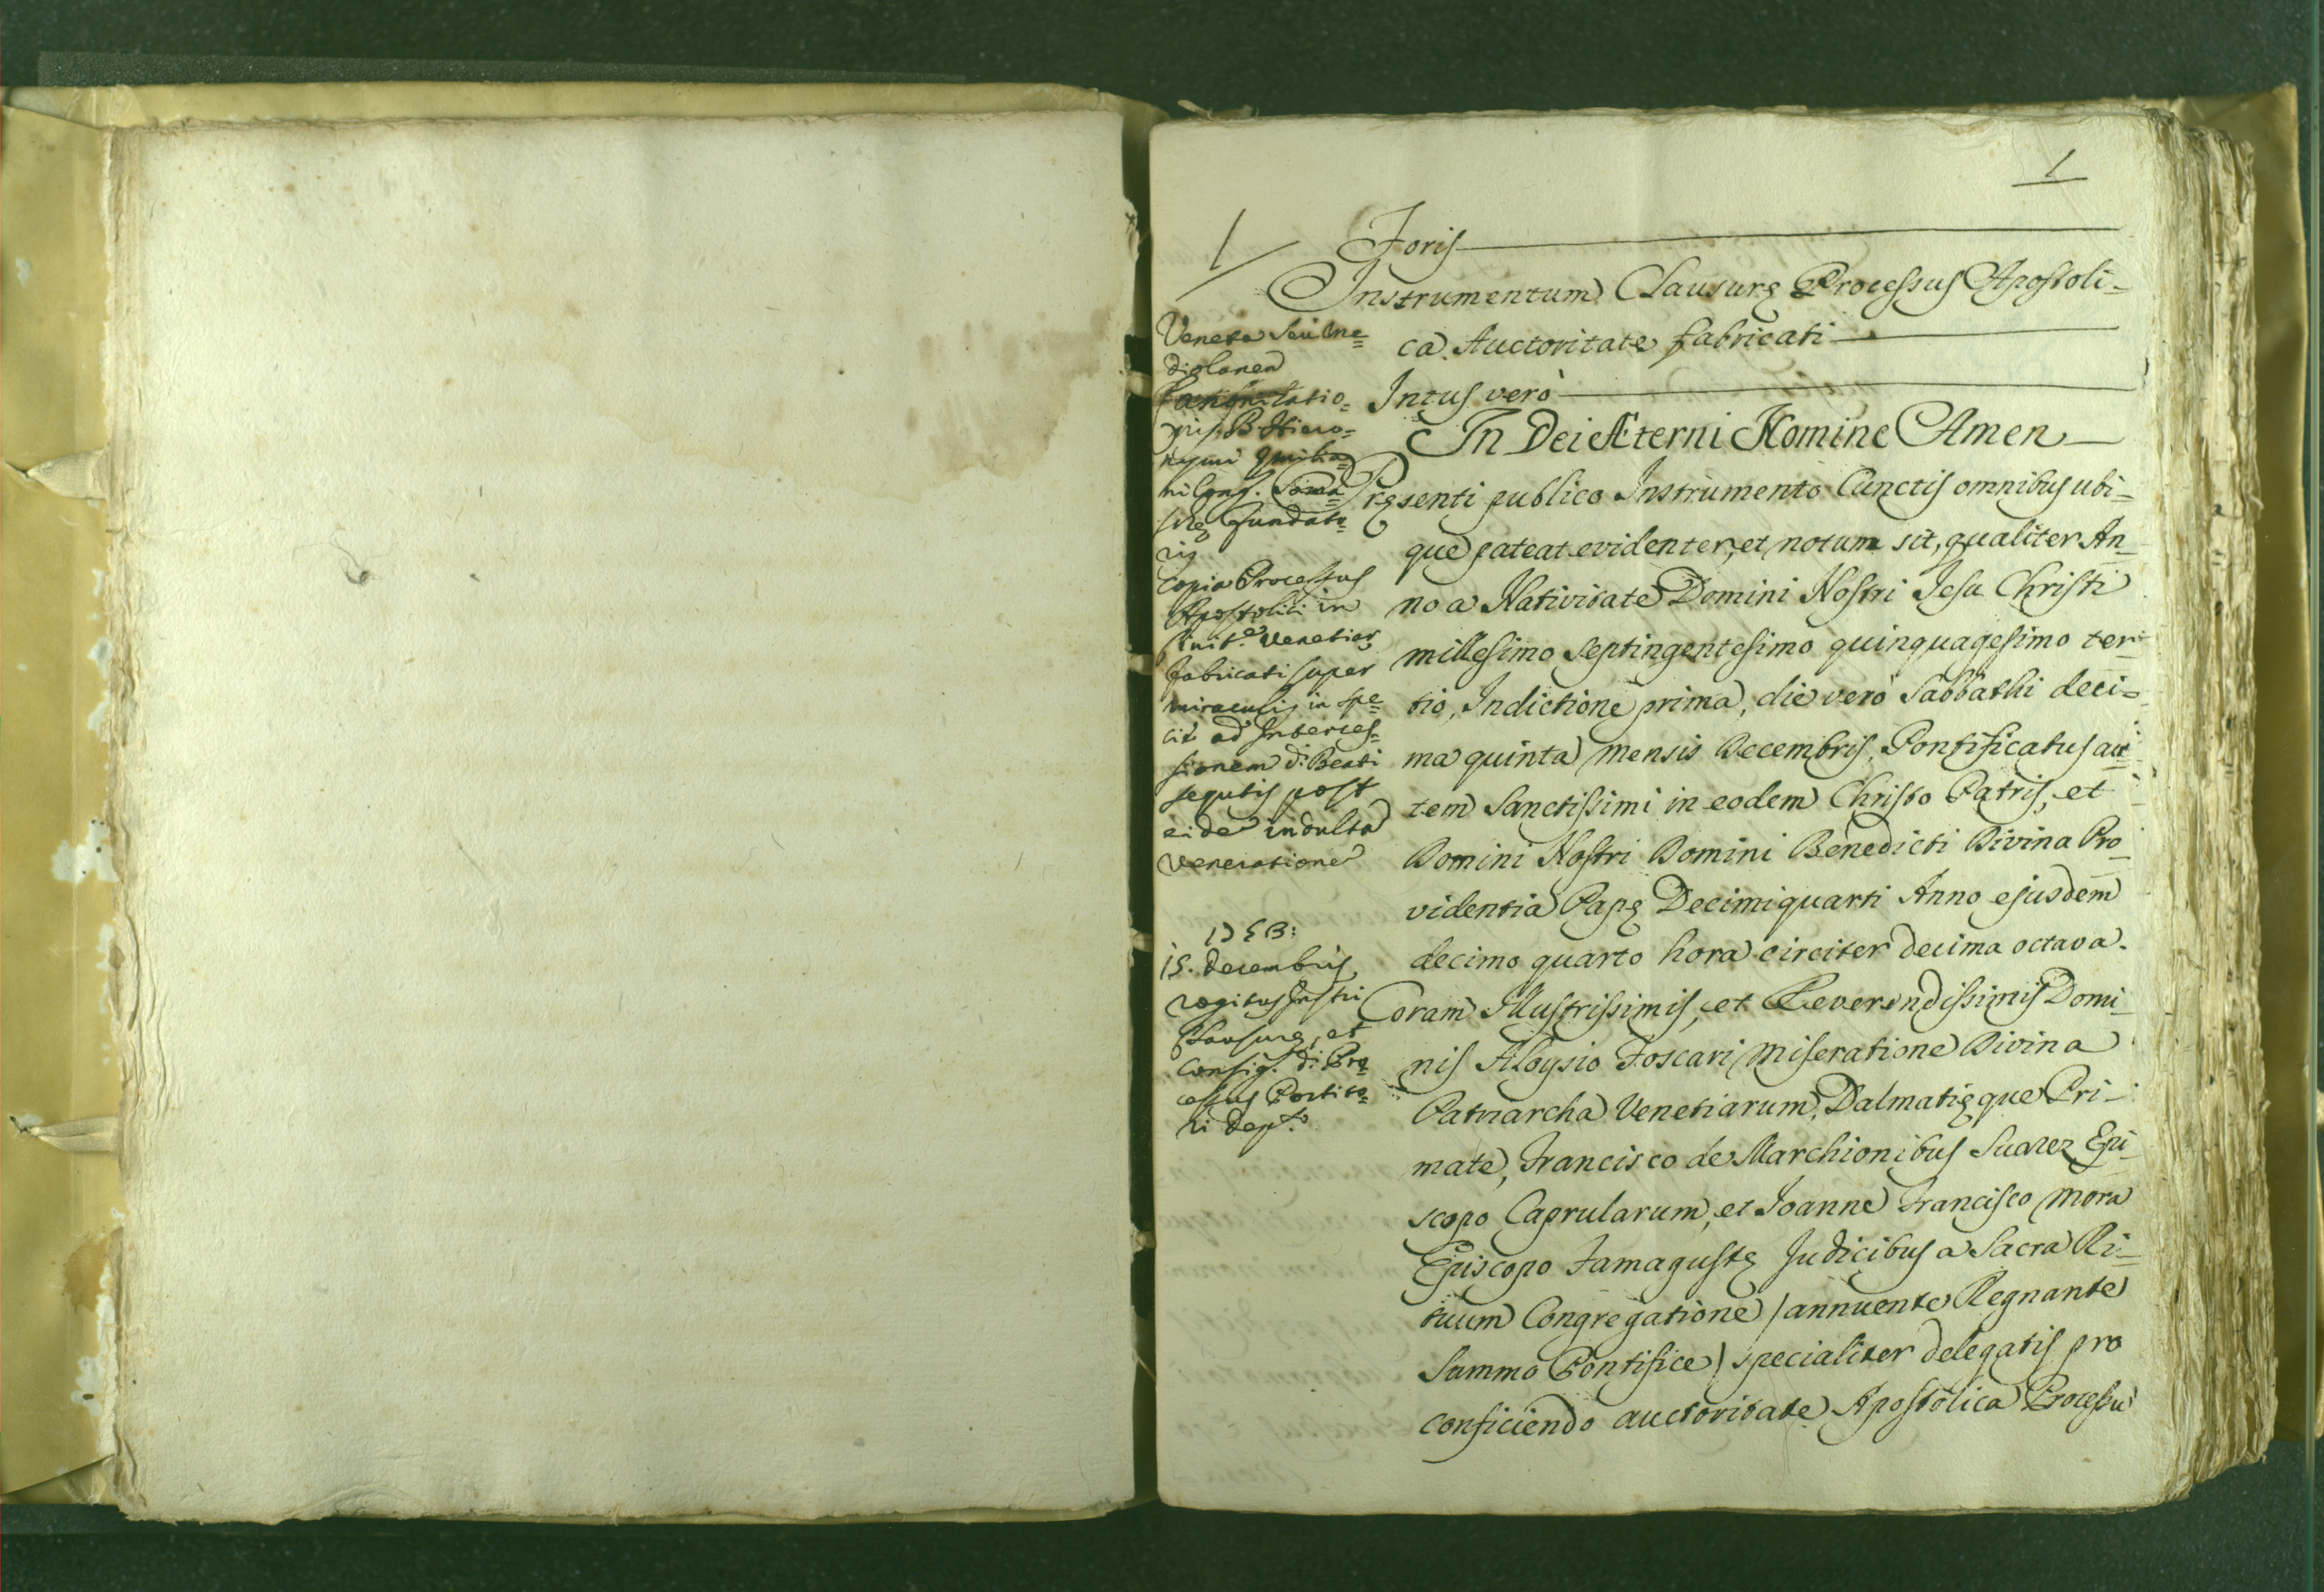 1
1
Foris
Instrumentum Clausurę Processus Apostoli-
ca Auctoritate fabricati
Intus verò
In Dei Æterni Nomine Amen
Pręsenti publico Instrumento Cunctis omnibus ubi-
que pateat evidenter, et notum sit, qualiter An-
no a Nativitate Domini Nostri Jesu Christi
millesimo septingentesimo quinquagesimo ter-
tio, Indictione prima, die verò Sabbathi deci-
ma quinta mensis Decembris, Pontificatus au-
tem Sanctissimi in eodem Christo Patris, et
Domini Nostri Domini Benedicti Divina Pro-
videntia Papę Decimiquarti Anno ejusdem
decimo quarto hora circiter decima octava.
Coram Illustrissimis, et Reverendissimis Domi-
nis Aloysio Foscari Miseratione Divina
Patriarcha Venetiarum, Dalmatięque Pri-
mate, Francisco de Marchionibus Suarez Epi-
scopo Caprularum, et Joanne Francisco Mora
Episcopo Famagustę Judicibus a Sacra Ri-
tuum Congregatione / annuente Regnante
Summo Pontifice / specialiter delegatis pro
conficiendo auctoritate Apostolica Processu
Veneta seu Me=
diolanen
Canonizatio=
nis B. Hiero=
nymi Emilia=
ni Cong. Soma=
schę Fundato=
ris
Copia Processus
Apostolici in
Civit.e Venetiar
fabricati super
miraculis in spe=
cie ad Interces=
sionem d. Beati
sequtis post
eidem indulta
veneratione
15. Decembris
rogitus Instri
Clausurę, et
Consig. d. Pro=
cessus Portito=
ri dep.to